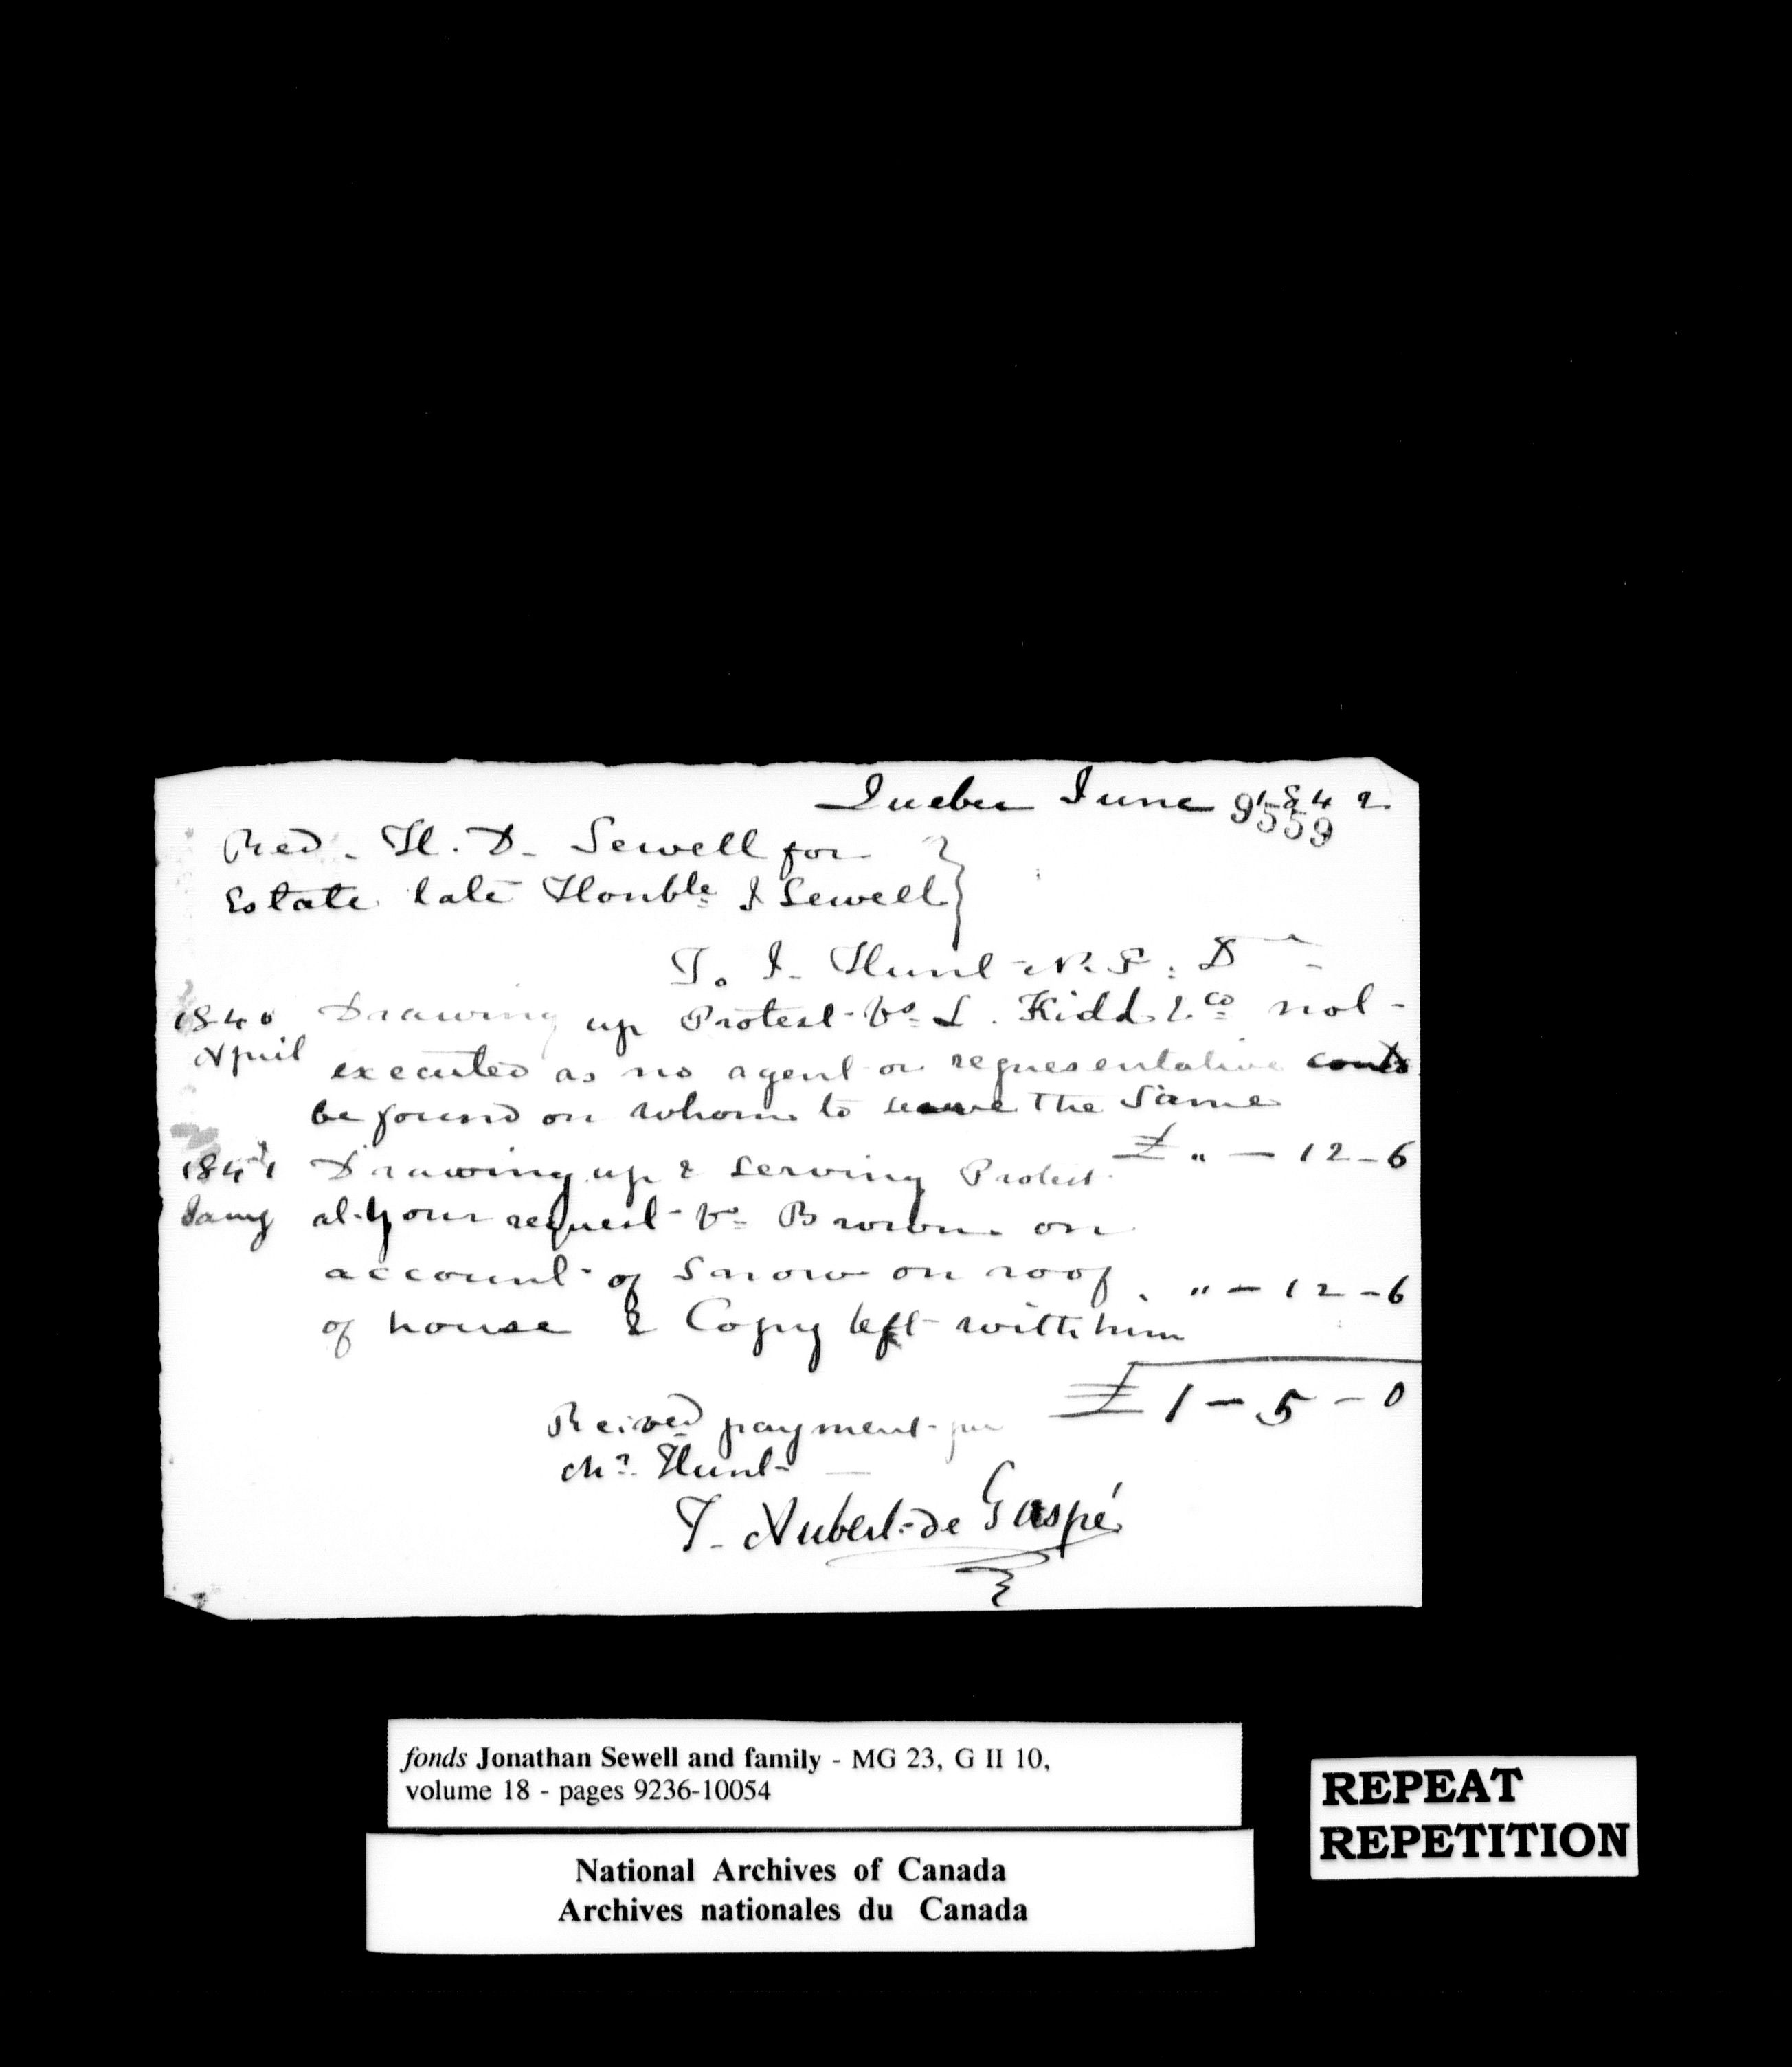 Quebec June 1842
9559
Revd. H. D. Sewell for
Estate late Honble J Sewell
To J. Hunt N. P. Dr
1840 Drawing up Protest Vs L. Kidd & Co not
April executed as no agent or representative could
be found on whom to serve the same
£ " - 12 - 6
1841 Drawing up & serving Protest
Jany at your request Vs Brown on
account of snow on roof . " - 12 - 6
of house & Copy left with him
£ 1 - 5 - 0
Reived payment for
Mr. Hunt
T. Aubert de Gaspé
fonds Jonathan Sewell and family - MG 23, G II 10,
volume 18 - pages 9236-10054
National Archives of Canada
Archives nationales du Canada
REPEAT
REPETITION